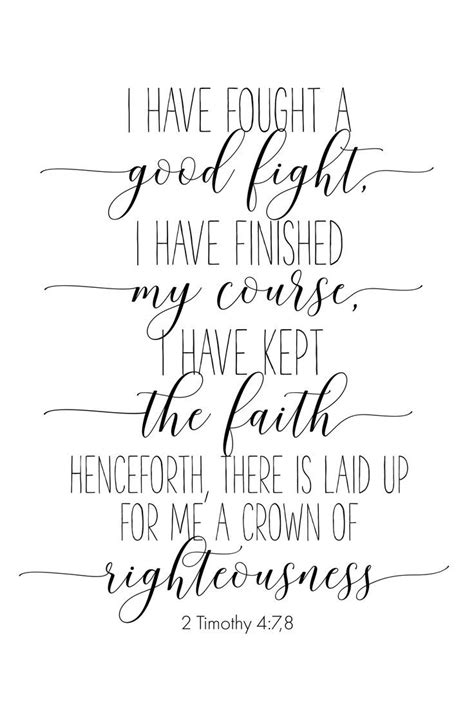 I HAVE FOUGHT A
good fight,
I HAVE FINISHED
my course,
I HAVE KEPT
the faith
HENCEFORTH, THERE IS LAID UP
FOR ME A CROWN OF
righteousness
2 Timothy 4:7,8